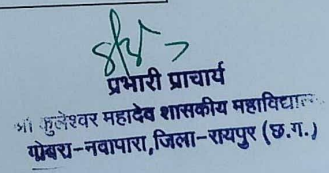 प्रभारी प्राचार्य
श्री कुलेश्वर महादेव शासकीय महाविद्यालय
गोबरा-नवापारा,जिला-रायपुर (छ.ग.)